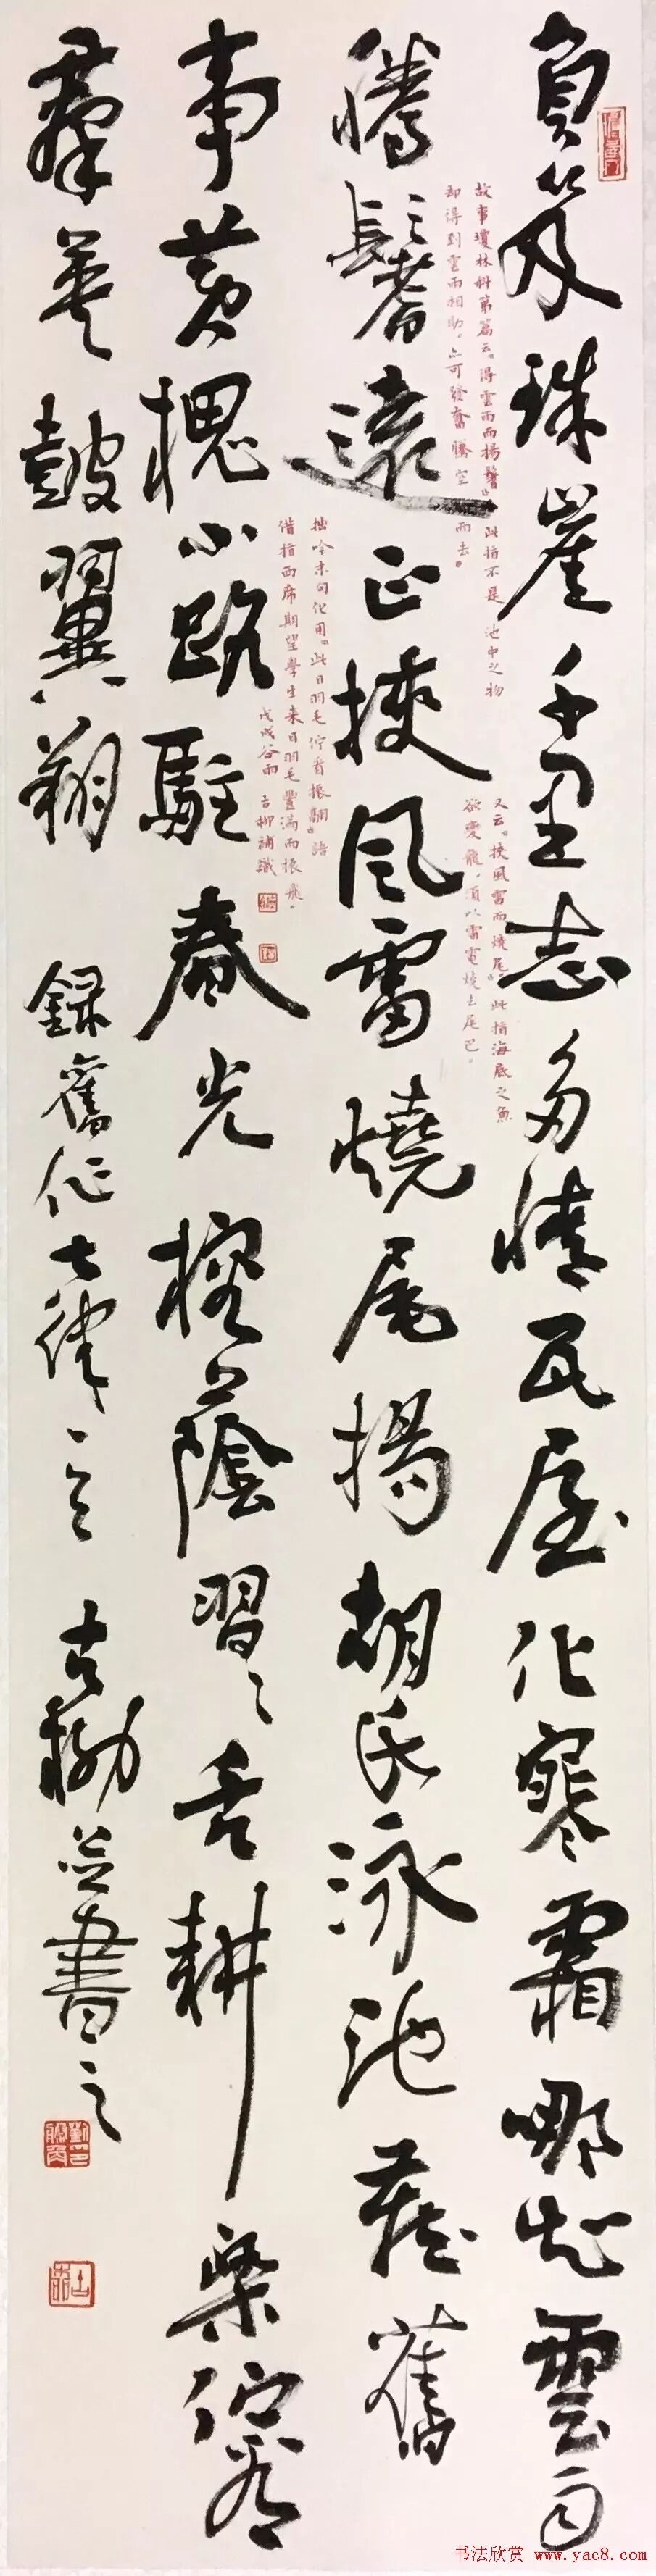 負笈珠崖千里志多情瓦屋化寒霜哪知雲雨
騰鬐遠正挾風雷燒尾揚胡氏泳池藏舊
事黄槐小路駐春光榕蔭習〻舌耕樂佇看
羣英鼓翼翔 録舊作七律 古柳並書之
故事瓊林科第篇云。得雲雨而揚鬐。此指不是池中之物
却得到雲雨相助。亦可發奮騰空而去。
又云。挾風雷而燒尾。此指海底之魚
欲變龍。須以雷電燒去尾巴。
拙吟末句化用。此日羽毛佇看振翮。語
借指西席期望學生来日羽毛豐滿而振飛。
戊戌谷雨 古柳補識
书法欣赏 www.yac8.com